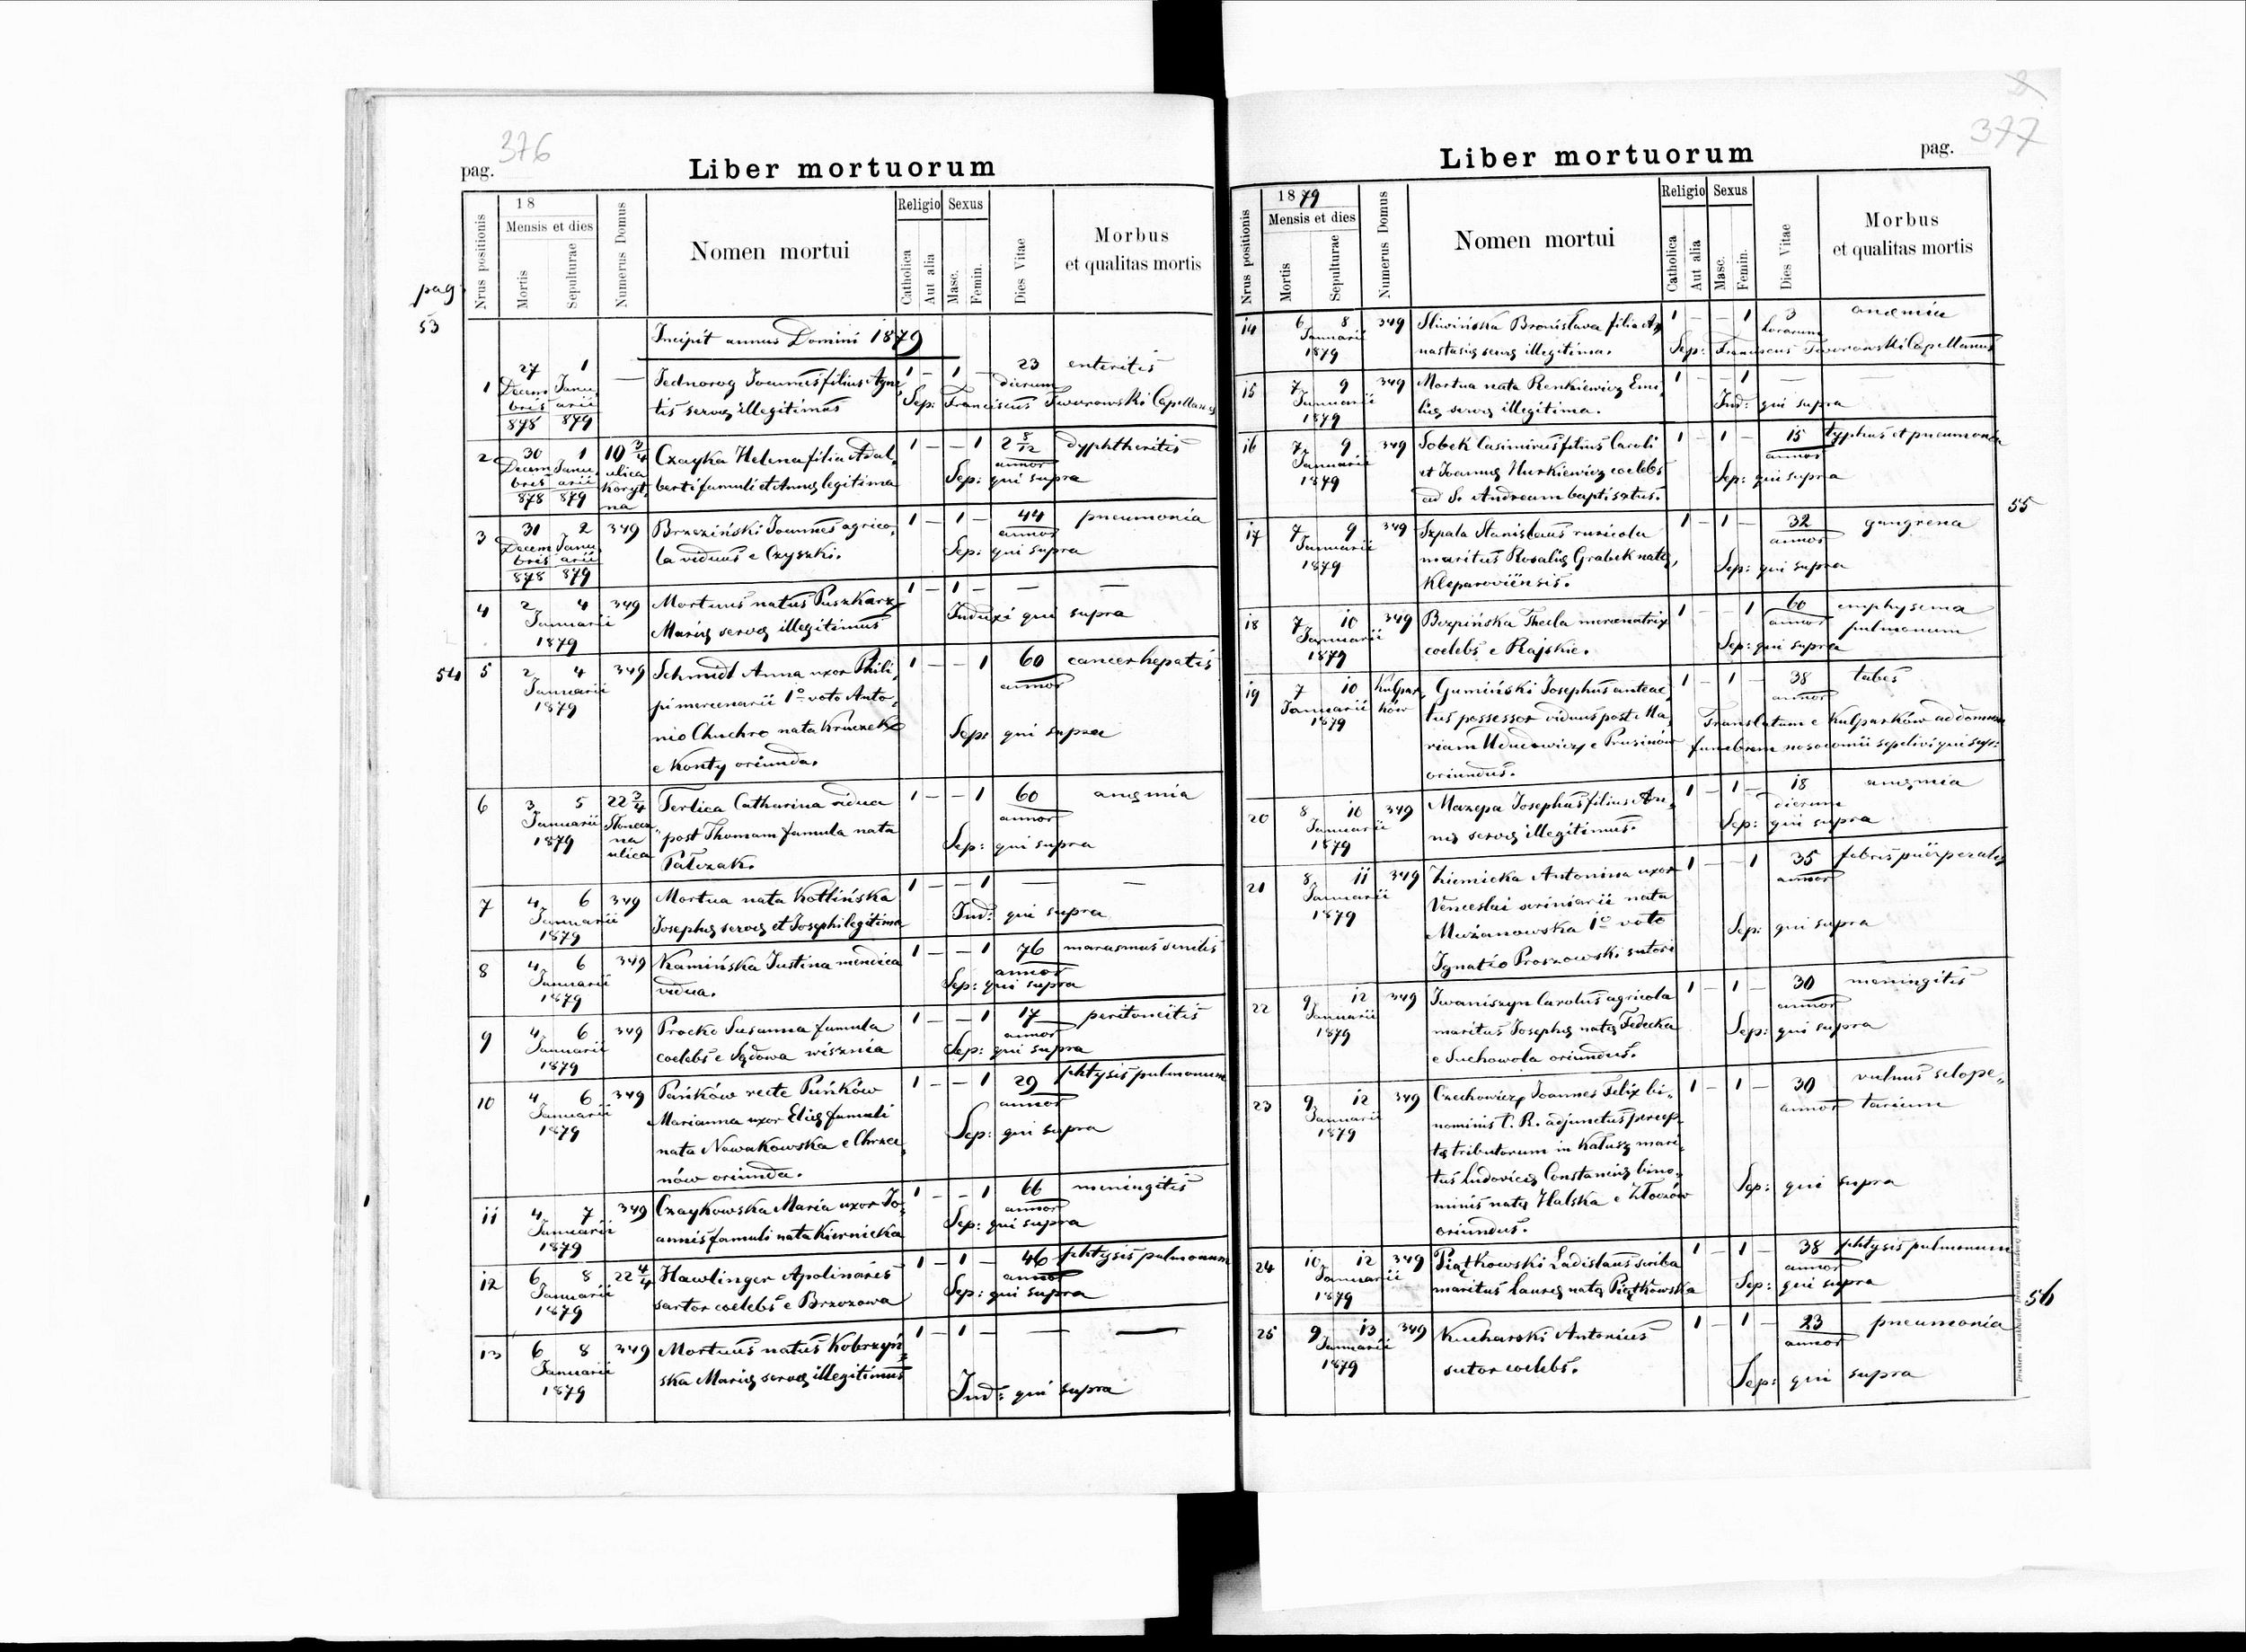 376
pag.
Liber mortuorum
Nrus positionis
18
Mensis et dies
Mortis
Sepulturae
Numerus Domus
Nomen mortui
Religio
Catholica
Aut alia
Sexus
Masc.
Femin.
Dies Vitae
Morbus
et qualitas mortis
pag.
53
Incipit annus Domini 1879
1 27 1 — Jednorog Joannes filius Agne, 1 – 1 – 23 enteritis
Decem Janu, tis servæ illegitimus dierum
bris arii Sep: Franciscus Tworowski Capellanus
878 879
2 30 1 10 3/4 Czayka Helena filia Adal, 1 – – 1 2 5/12 dyphtheritis
Decem Janu, ulica berti famuli et Annæ legitima annor
bris arii Koryt, Sep: qui supra
878 879 na
3 31 2 349 Brzeziński Joannes agrico, 1 – 1 – 44 pneumonia
Decem Janu, la viduus e Czyszki. annor
bris arii Sep: qui supra
878 879
4 2 4 349 Mortuus natus Puszkarz 1 – 1 – — —
Januarii Mariæ servæ illegitimus Induxi qui supra
1879
54
5 2 4 349 Schmidt Anna uxor Phili, 1 – – 1 60 cancer hepatis
Januarii pi mercenarii 1o voto Anto, annor
1879 nio Chuchro nata Kruczek
e Konty oriunda. Sep: qui supra
6 3 5 22 3/4 Terlica Catharina vidua 1 – – 1 60 anæmia
Januarii Słonecz, post Thomam famula nata annor
1879 na ulica Palczak. Sep: qui supra
7 4 6 349 Mortua nata Kotlińska 1 – – 1 — —
Januarii Josephæ servæ et Josephi legitima Ind: qui supra
1879
8 4 6 349 Kamińska Justina mendica 1 – – 1 76 marasmus senilis
Januarii vidua. annor
1879 Sep: qui supra
9 4 6 349 Procko Susanna famula 1 – – 1 17 peritoneitis
Januarii coelebs e Sądowa wisznia annor
1879 Sep: qui supra
10 4 6 349 Pańków recte Puńków 1 – – 1 29 phtysis pulmonum
Januarii Marianna uxor Eliæ famuli annor
1879 nata Nowakowska e Chrza, Sep: qui supra
nów oriunda.
11 4 7 349 Czaykowska Maria uxor Jo, 1 – – 1 66 meningitis
Januarii annis famuli nata Kiernicka annor
1879 Sep: qui supra
12 6 8 22 4/4 Hawlinger Apolinares 1 – 1 – 46 phtysis pulmonum
Januarii sartor coelebs e Brzozowa annor
1879 Sep: qui supra
13 6 8 349 Mortuus natus Kobrzyń, 1 – 1 – — —
Januarii ska Mariæ servæ illegitimus
1879 Ind: qui supra
377
Liber mortuorum
pag.
Nrus positionis
1879
Mensis et dies
Mortis
Sepulturae
Numerus Domus
Nomen mortui
Religio
Catholica
Aut alia
Sexus
Masc.
Femin.
Dies Vitae
Morbus
et qualitas mortis
14 6 8 349 Sliwińska Bronislava filia A, 1 – – 1 3 anæmia
Januarii nastasiæ servæ illegitima. horarum
1879 Sep: Franciscus Tworowski Capellanus
15 7 9 349 Mortua nata Renkiewicz Emi, 1 – – 1 — —
Januarii liæ servæ illegitima. Ind: qui supra
1879
16 7 9 349 Sobek Casimirus filius Caroli 1 – 1 – 15 typhus et pneumonia
Januarii et Joannæ Hurkiewicz coelebs annor
1879 ad S. Andream baptisatus. Sep: qui supra
55
17 7 9 349 Szpala Stanislaus ruricola 1 – 1 – 32 gangrena
Januarii maritus Rosaliæ Grabek natæ, annor
1879 Kleparoviensis. Sep: qui supra
18 7 10 349 Bezpińska Thecla mercenatrix 1 – – 1 60 emphysema
Januarii coelebs e Rajskie. annor pulmonum
1879 Sep: qui supra
19 7 10 Kulpar, Gumiński Josephus anteac, 1 – 1 – 38 tabes
Januarii ków tus possessor viduus post Ma, annor
1879 riam Ududowicz e Prusinów Translatum e Kulparków ad domum
oriundus. funebrem nosocomii sepelivi qui supr:
20 8 10 349 Mazepa Josephus filius An, 1 – 1 – 18 anæmia
Januarii næ servæ illegitimus. dierum
1879 Sep: qui supra
21 8 11 349 Ziemicka Antonina uxor 1 – – 1 35 febris puerperalis
Januarii Venceslai scriniarii nata annor
1879 Muzanowska 1o voto Sep: qui supra
Ignatio Proszowski sutori
22 9 12 349 Iwaniszyn Carolus agricola 1 – 1 – 30 meningitis
Januarii maritus Josephæ natæ Fedecka annor
1879 e Suchowola oriundus. Sep: qui supra
23 9 12 349 Czechowicz Joannes Felix bi- 1 – 1 – 30 vulnus sclope,
Januarii nominis C. R. adjunctus percep annor tarium
1879 tæ tributorum in Kałusz mari-
tus Ludovicæ Constanciæ bino-
minis natæ Halska e Złoczów Sep: qui supra
oriundus.
24 10 12 349 Piątkowski Ladislaus scriba 1 – 1 – 38 phtysis pulmonum
Januarii maritus Lauræ natæ Piątkowska annor
1879 Sep: qui supra
56
25 9 13 349 Kucharski Antonius 1 – 1 – 23 pneumonia
Januarii sutor coelebs. annor
1879 Sep: qui supra